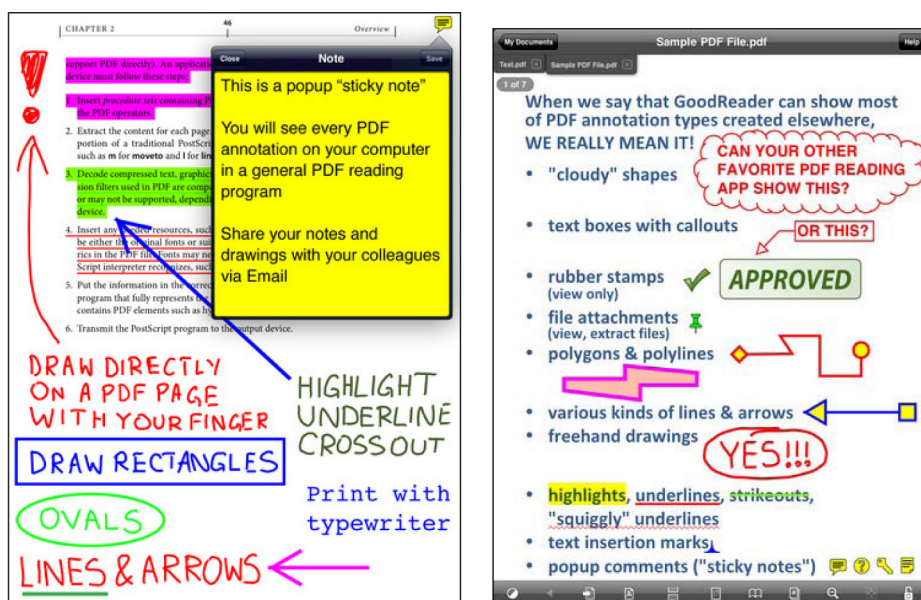 CHAPTER 2
46
Overview
support PDF directly). An applicatio
device must follow these steps:
1. Insert procedure sets containing P
the PDF operators.
2. Extract the content for each page.
portion of a traditional PostScrip
such as m for moveto and l for lin
3. Decode compressed text, graphic
sion filters used in PDF are compa
or may not be supported, dependin
device.
4. Insert any needed resources, suc
be either the original fonts or sui
rics in the PDF file. Fonts may ne
Script interpreter recognizes, suc
5. Put the information in the correc
program that fully represents the
contains PDF elements such as hy
6. Transmit the PostScript program to the output device.
Close
Note
Save
This is a popup “sticky note”
You will see every PDF
annotation on your computer
in a general PDF reading
program
Share your notes and
drawings with your colleagues
via Email
DRAW DIRECTLY
ON A PDF PAGE
WITH YOUR FINGER
HIGHLIGHT
UNDERLINE
CROSS OUT
DRAW RECTANGLES
Print with
typewriter
OVALS
LINES & ARROWS
My Documents
Sample PDF File.pdf
Help
Test.pdf
Sample PDF File.pdf
1 of 7
When we say that GoodReader can show most
of PDF annotation types created elsewhere,
WE REALLY MEAN IT!
CAN YOUR OTHER
FAVORITE PDF READING
APP SHOW THIS?
• "cloudy" shapes
• text boxes with callouts
OR THIS?
• rubber stamps
(view only)
APPROVED
• file attachments
(view, extract files)
• polygons & polylines
• various kinds of lines & arrows
• freehand drawings
YES!!!
• highlights, underlines, strikeouts,
"squiggly" underlines
• text insertion marks
• popup comments ("sticky notes")